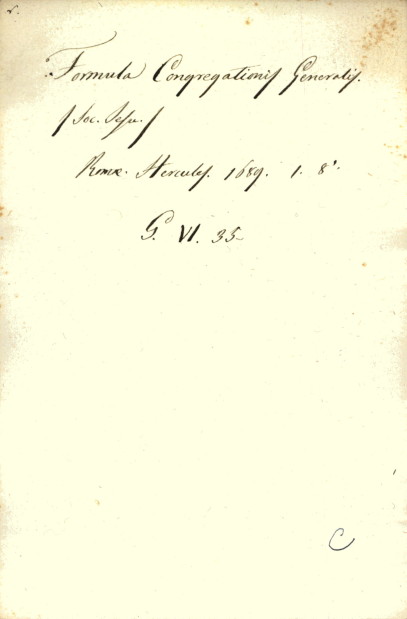 Formula Congregationis Generalis.
/ Soc. Jesu. /
Romæ. Hercules. 1689. 1. 8°.
G. VI. 35
C